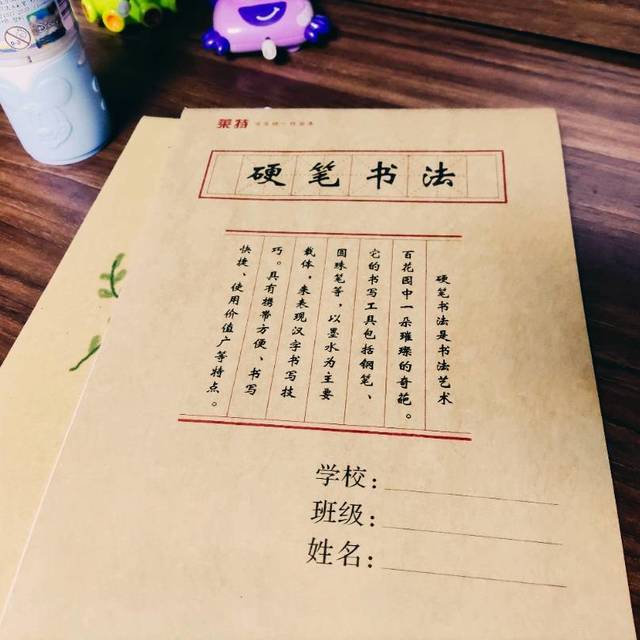 莱特
硬笔书法
硬笔书法是书法艺术
百花园中一朵璀璨的奇葩。
它的书写工具包括钢笔、
圆珠笔等，以墨水为主要
载体，来表现汉字书写技
巧。具有携带方便、书写
快捷、使用价值广等特点。
学校：
班级：
姓名：